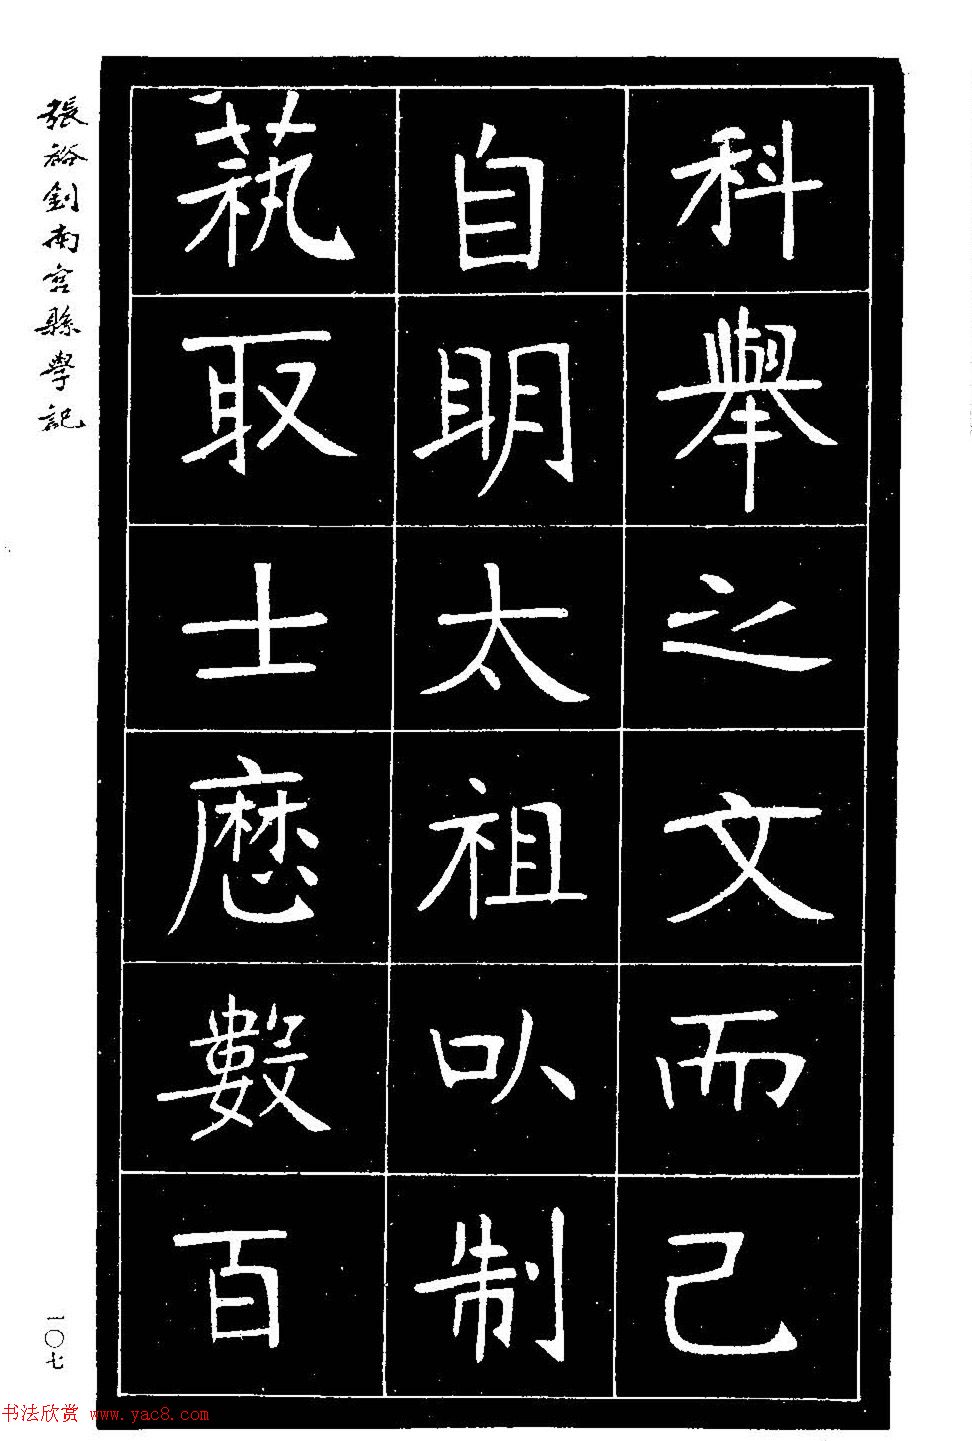 科舉之文而已
自明太祖以制
蓺取士歷數百
張裕釗南宮縣學記
一〇七
书法欣赏 www.yac8.com